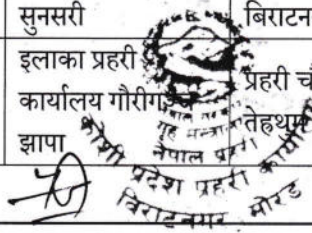 सुनसरी
बिराटन
इलाका प्रहरी
कार्यालय गौरीगञ्ज
झापा
प्रहरी चौ
तेह्रथुम
नेपाल प्रहरी
कोशी प्रदेश प्रहरी कार्यालय
विराटनगर मोरङ